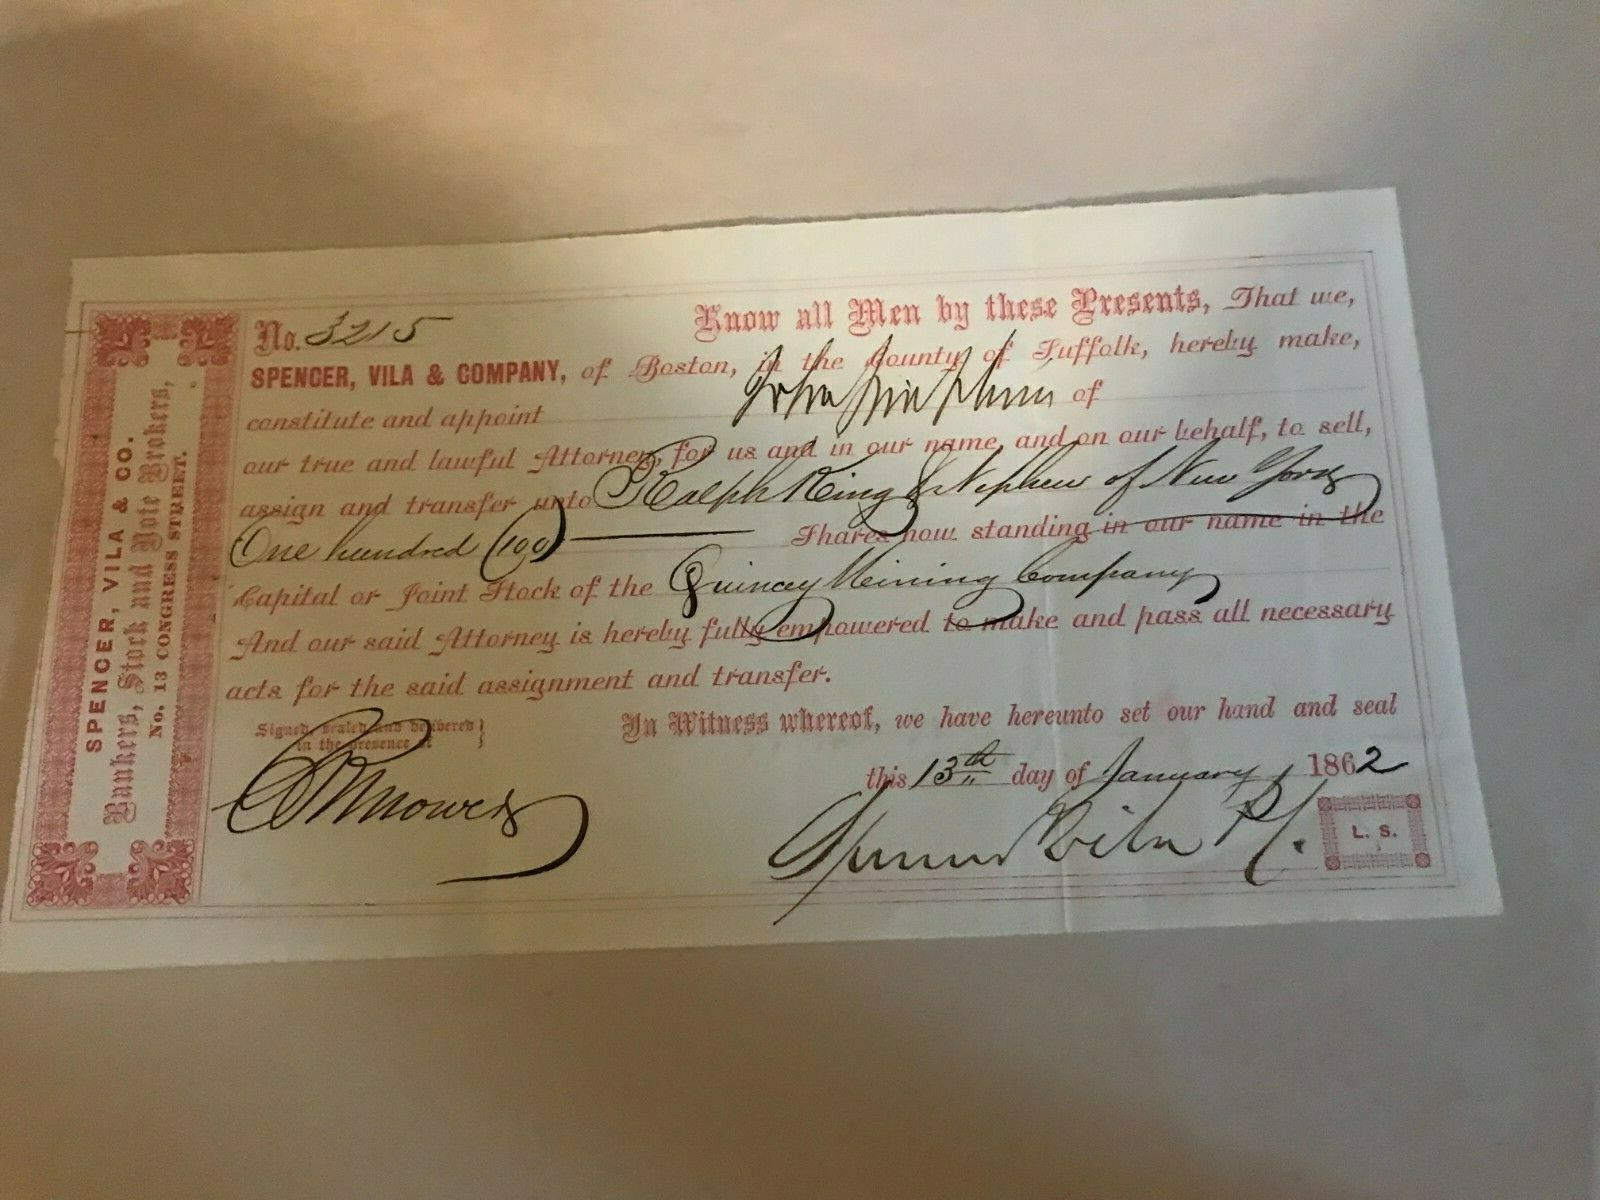 SPENCER, VILA & CO.
Bankers, Stock and Note Brokers,
No. 13 CONGRESS STREET.
No. 3215
Know all Men by these Presents, That we,
SPENCER, VILA & COMPANY, of Boston, in the County of Suffolk, hereby make,
constitute and appoint John of
our true and lawful Attorney, for us and in our name, and on our behalf, to sell,
assign and transfer unto Ralph King & Nephew of New York
One hundred (100) Shares now standing in our name in the
Capital or Joint Stock of the Quincey Mining Company
And our said Attorney is hereby fully empowered to make and pass all necessary
acts for the said assignment and transfer.
Signed, sealed and delivered
in the presence of
In Witness whereof, we have hereunto set our hand and seal
this 13th day of January 1862
Spencer Vila
L. S.